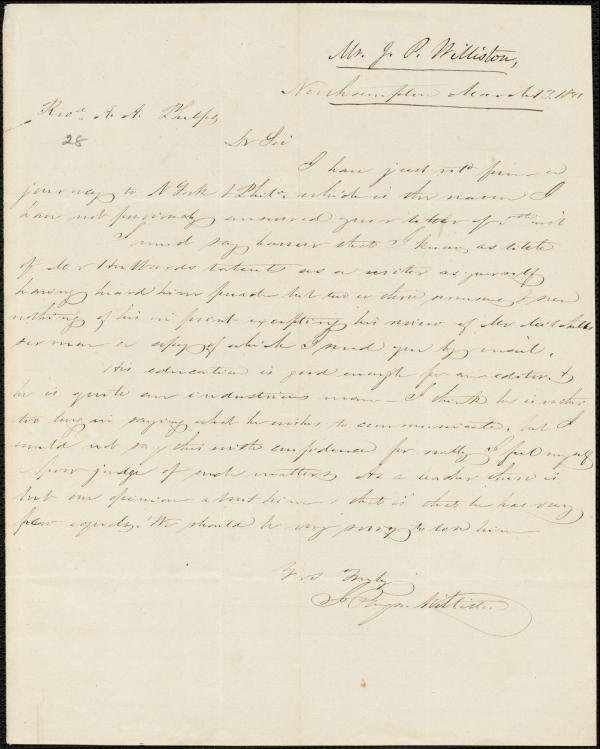 Mr. J. P. Williston,
Northampton March 13. 18
Revd. A. A. Phelps
28
Dr Sir
I have just retd from a
journey to N York & Phila. which is the reason I
have not previously answered your letter of 5th inst
I must say however that I know as little
of Mr Hubbards talents as a writer as yourself
having heard him preach but two or three sermons & seen
nothing of his in print excepting his review of Mr Mitchells
sermon a copy of which I send you by mail.
His education is good enough for an editor &
he is quite an industrious man - I think he is rather
too long in saying what he wishes to communicate. but I
would not say this with confidence for really I feel myself
a poor judge of such matters. As a there is
but one opinion about him & that is that he has very
few equals. We should be very sorry to lose him
Yrs Truly
J. Payn. Williston